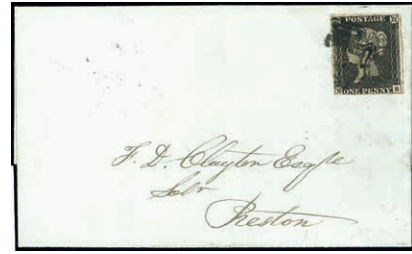 POSTAGE
ONE PENNY
F. D. Clayton Esqre
Solr
Preston